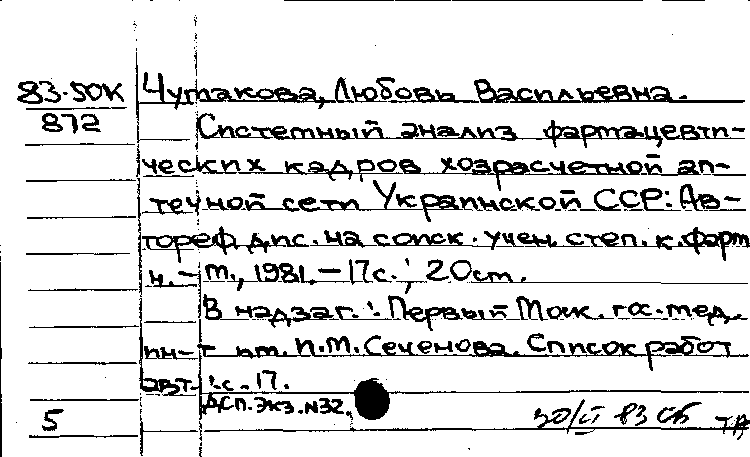 83-50К Чумакова, Любовь Васильевна.
872 Системный анализ фармацевти-
ческих кадров хозрасчетной ап-
течной сети Украинской ССР: Ав-
тореф. дис. на соиск. учен. степ. к. фарм
н. - М., 1981. - 17с.; 20см.
В надзаг.: Первый Моск. гос. мед.
ин-т им. И.М. Сеченова. Список работ
авт.: с. 17.
ДСП. Экз. №32.
5
83 СБ